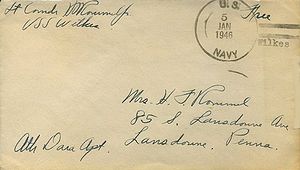 Lt Comdr
USS Wilkes
U.S.
5
JAN
1946
NAVY
Free
Wilkes
Mrs. H F Rommel
85 S. Lansdowne Ave
Lansdowne, Penna.
Apt.